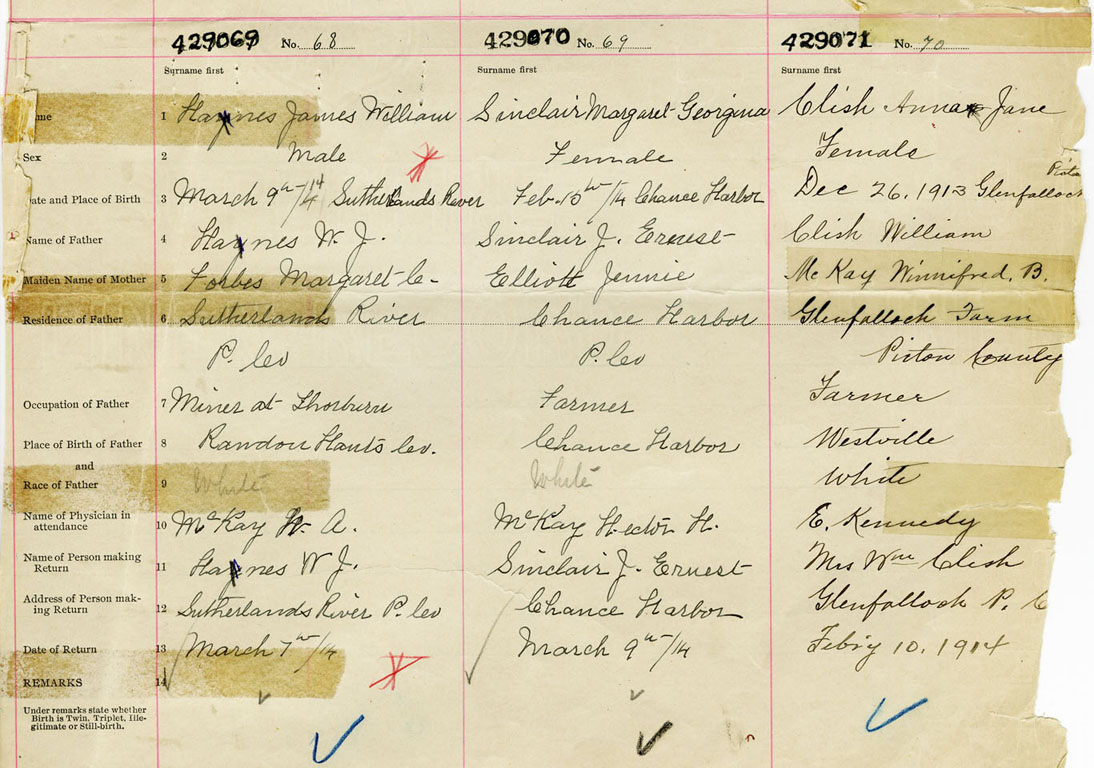 429069 No. 68 429070 No. 69 429071 No. 70
Surname first Surname first Surname first
1 Haynes James William Sinclair Margaret Georgina Clish Anna Jane
Sex 2 Male Female Female
Date and Place of Birth 3 March 9th/14 Sutherlands River Feb. 10th/14 Chance Harbor Dec 26, 1913 Glenfalloch
Name of Father 4 Haynes W. J. Sinclair J. Ernest Clish William
Maiden Name of Mother 5 Forbes Margaret C- Elliott Jennie McKay Winnifred. B.
Residence of Father 6 Sutherlands River Chance Harbor Glenfalloch Farm
P. Co P. Co Pictou County
Occupation of Father 7 Miner at Thorburn Farmer Farmer
Place of Birth of Father 8 Randon Hants Co. Chance Harbor Westville
and
Race of Father 9 White White White
Name of Physician in
attendance 10 McKay W. A. McKay Hector H. E. Kennedy
Name of Person making
Return 11 Haynes W J. Sinclair J. Ernest Mrs Wm Clish
Address of Person mak-
ing Return 12 Sutherlands River P. Co Chance Harbor Glenfalloch P. C
Date of Return 13 March 7th/14 March 9th/14 Feb'y 10, 1914
REMARKS 14
Under remarks state whether
Birth is Twin, Triplet, Ille-
gitimate or Still-birth.